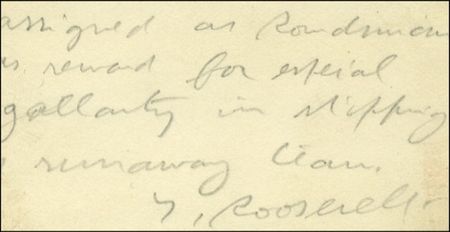 assigned as Roundsman
as reward for especial
gallantry in stopping
a runaway team.
T. Roosevelt